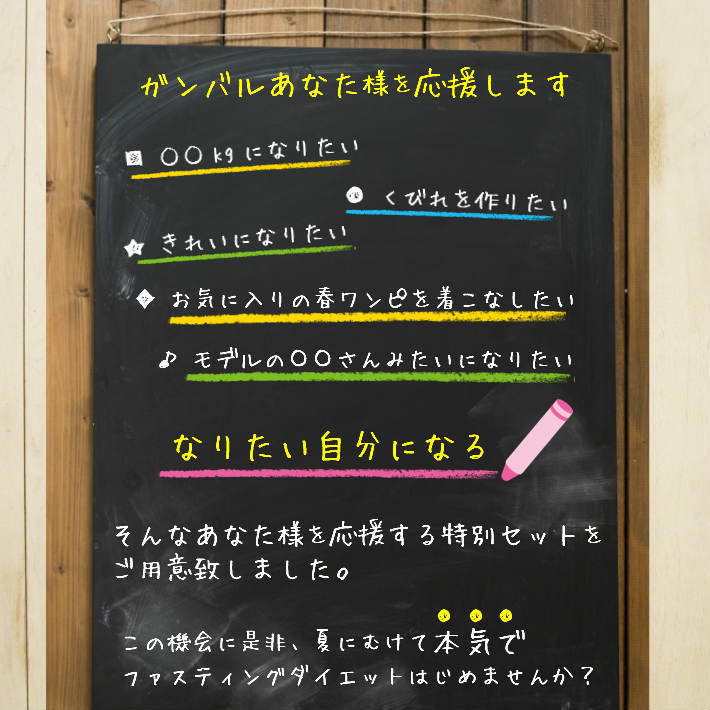 ガンバルあなた様を応援します
〇〇kgになりたい
くびれを作りたい
きれいになりたい
お気に入りの春ワンピを着こなしたい
モデルの〇〇さんみたいになりたい
なりたい自分になる
そんなあなた様を応援する特別セットを
ご用意致しました。
この機会に是非、夏にむけて本気で
ファスティングダイエットはじめませんか？